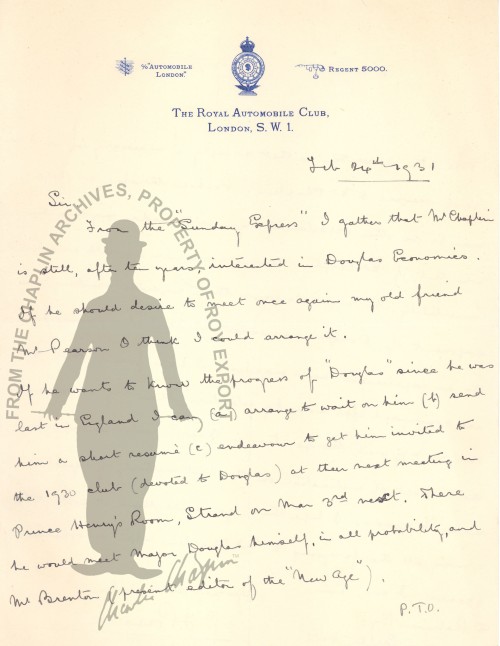 ℅ "AUTOMOBILE
LONDON."
REGENT 5000.
THE ROYAL AUTOMOBILE CLUB,
LONDON, S. W. 1.
Feb 24th 1931
Sir,
From the "Sunday Express" I gather that Mr Chaplin
is still, after ten years, interested in Douglas Economics.
If he should desire to meet once again my old friend
Mr Pearson I think I could arrange it.
If he wants to know the progress of "Douglas" since he was
last in England I can (a) arrange to wait on him (b) send
him a short resumé (c) endeavour to get him invited to
the 1930 club (devoted to Douglas) at their next meeting in
Prince Henry's Room, Strand on Mar 3rd next. There
he would meet Major Douglas himself, in all probability, and
Mr Brenton (present editor of the "New Age").
P.T.O.
FROM THE CHAPLIN ARCHIVES, PROPERTY OF ROY EXPORT
Charlie Chaplin